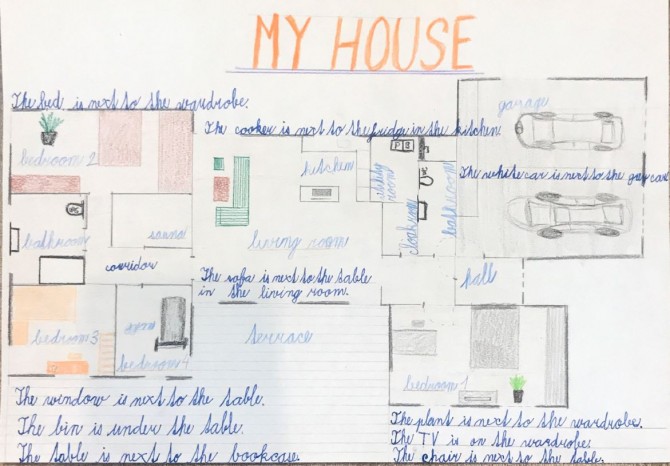 MY HOUSE
The bed is next to the wardrobe.
garage
The cooker is next to the fridge in the kitchen.
bedroom 2
kitchen
The white car is next to the grey car.
room
bathroom
cloakroom
bathroom
sauna
living room
corridor
hall
The sofa is next to the table
in the living room.
bedroom 3
terrace
bedroom 4
bedroom 1
The window is next to the table.
The bin is under the table.
The table is next to the bookcase.
The plant is next to the wardrobe.
The TV is on the wardrobe.
The chair is next to the table.